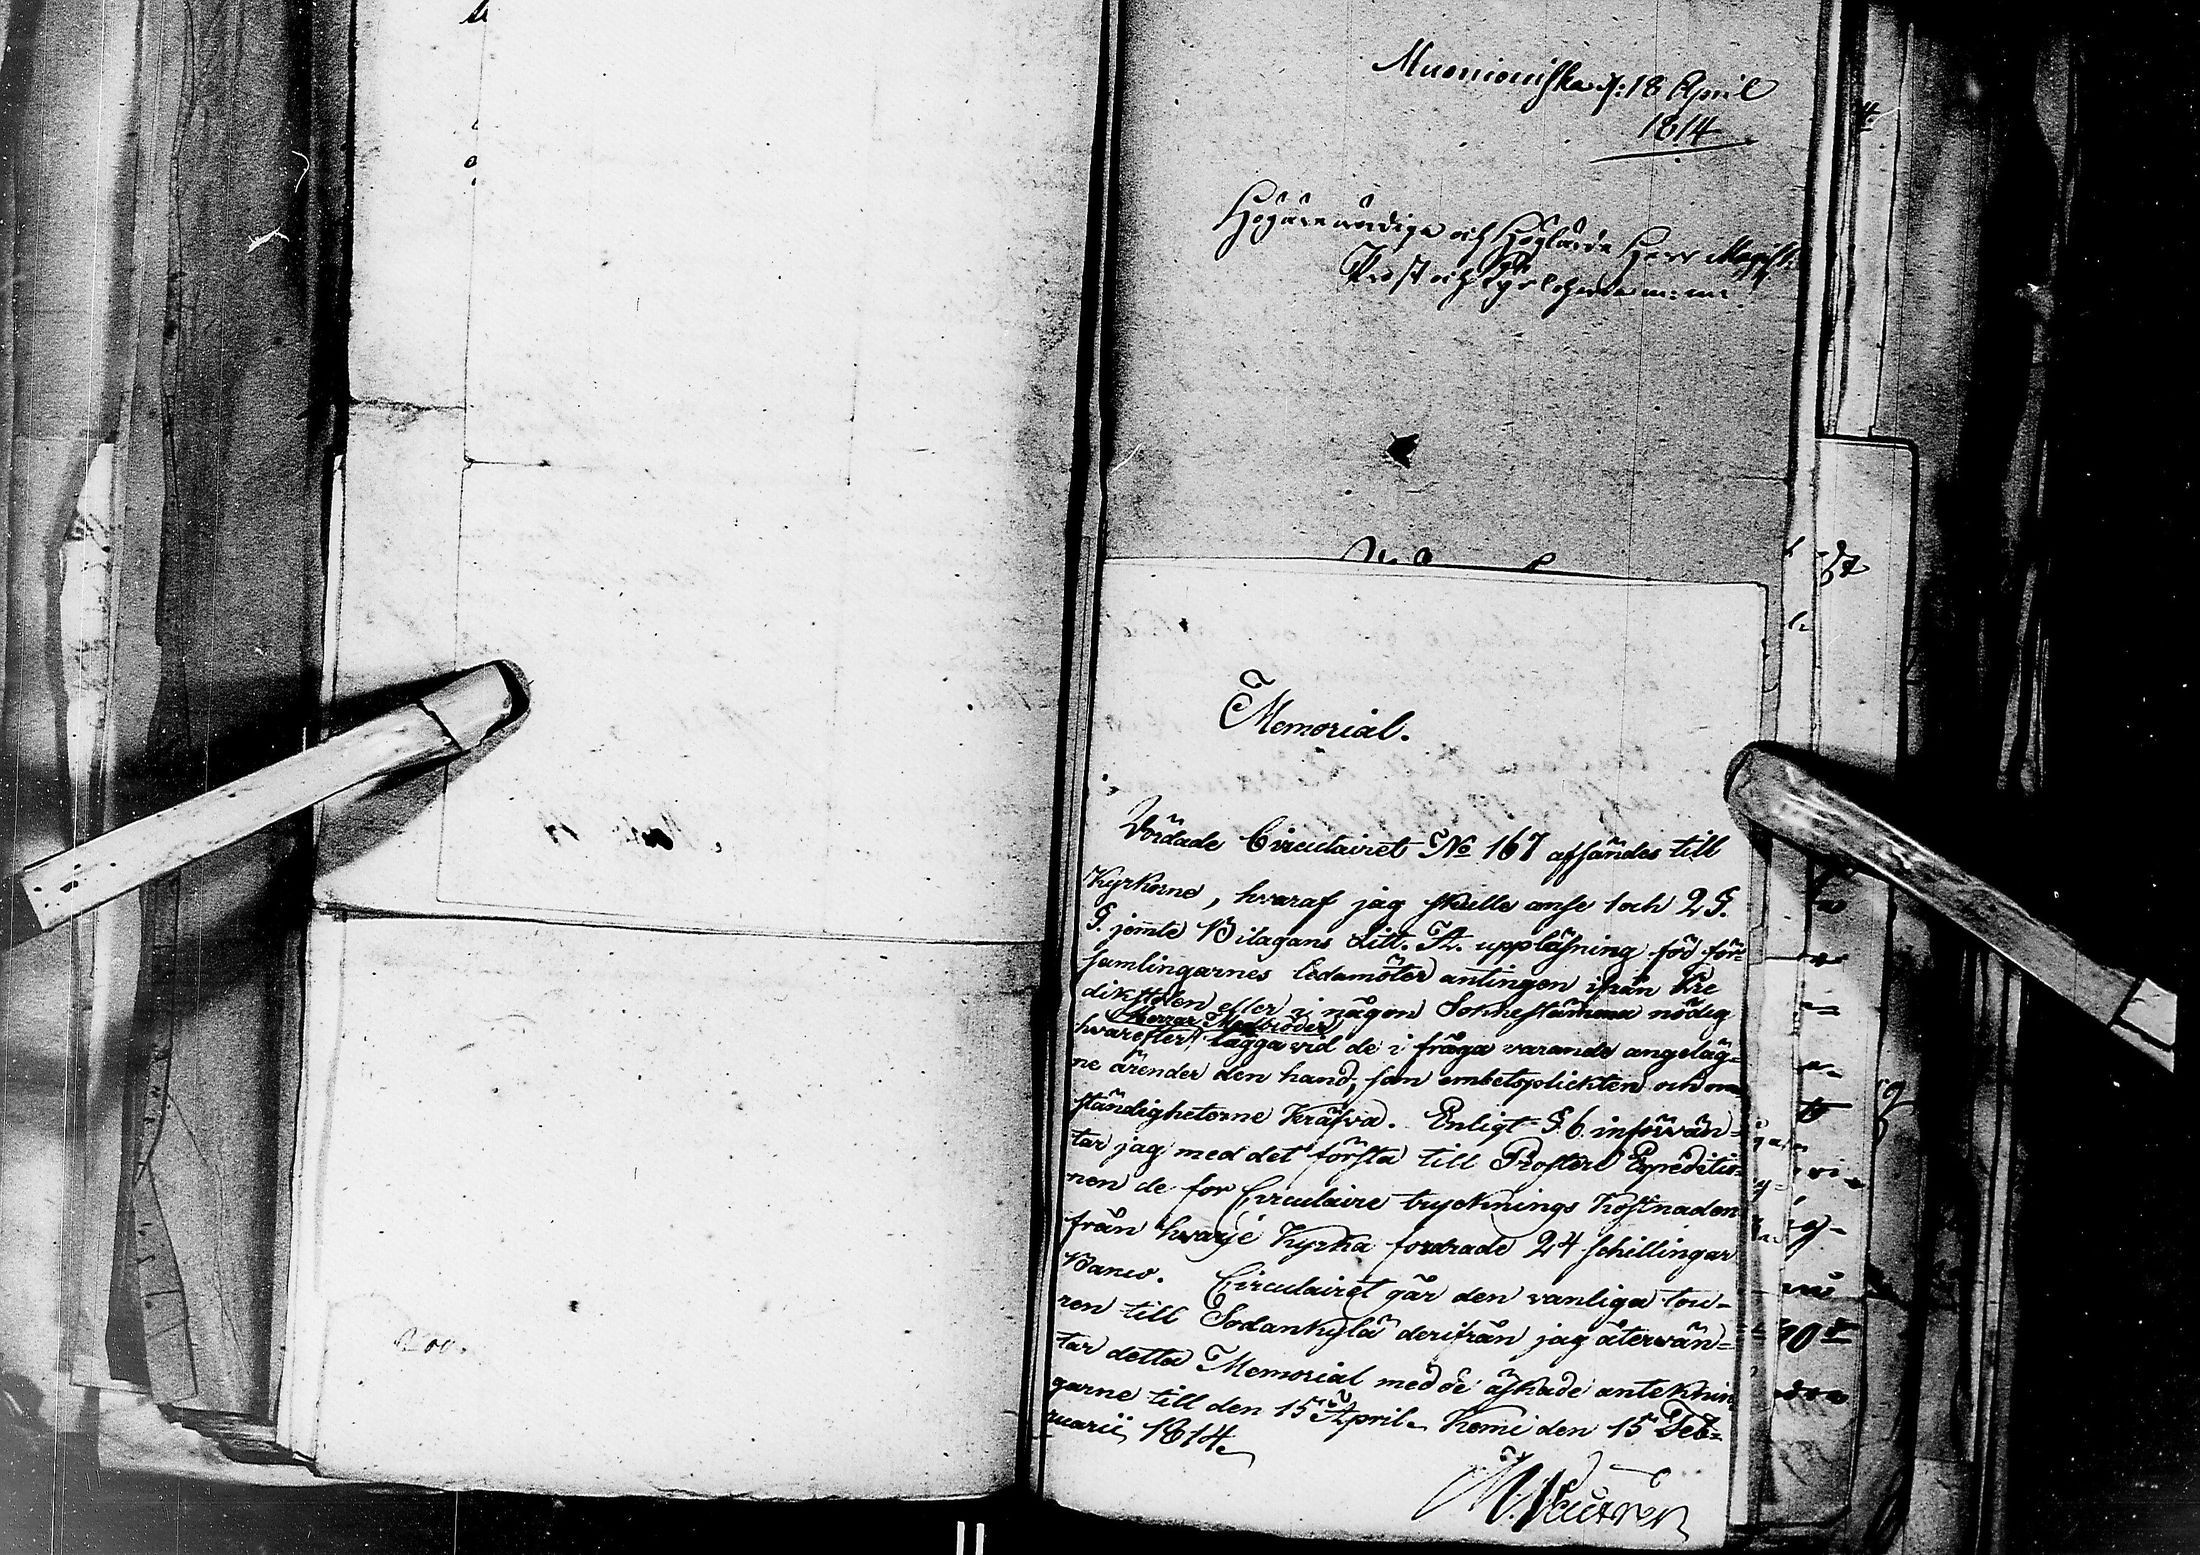 Muonioniska d: 18 April
1814
Högärewördige och Höglärde Herr Magist:
Prost och Kyrkoherde m: m:
Memorial.
Vördade Circulairet No 167 afsändes till
Kyrkorne, hvaraf jag skulle anse 1 och 2 §.
§. jemte Bilagans Litt. A. uppläsning för för=
samlingarnes ledamöter antingen ifrån Pre
dikstolen eller i någon Soknestämma nödig
hvarefter Herrar Medbröder lägga vid de i fråga varande angeläg=
ne ärender den hand, som embetsplickten och om
ständigheterne kräfva. Enligt §. 6 införvän=
tar jag med det första till Prosteri Expeditio=
nen de for Circulaire trycknings kostnaden
från hvarje Kyrka fordrade 24 schillingar
Banco. Circulairet går den vanliga tou=
ren till Sodankylä derifrån jag återvän=
tar detta Memorial med de äskade anteknin
garne till den 15 April. Kemi den 15 Feb=
ruarii 1814.